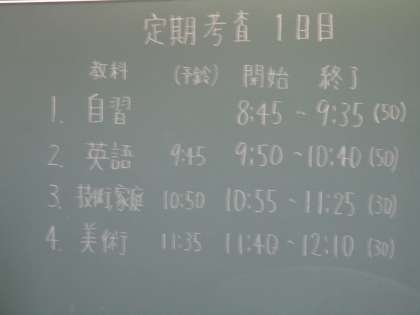 定期考査 1日目
教科 (予齢) 開始 終了
1. 自習 8:45 ~ 9:35 (50)
2. 英語 9:45 9:50 ~ 10:40 (50)
3. 技術、家庭 10:50 10:55 ~ 11:25 (30)
4. 美術 11:35 11:40 ~ 12:10 (30)